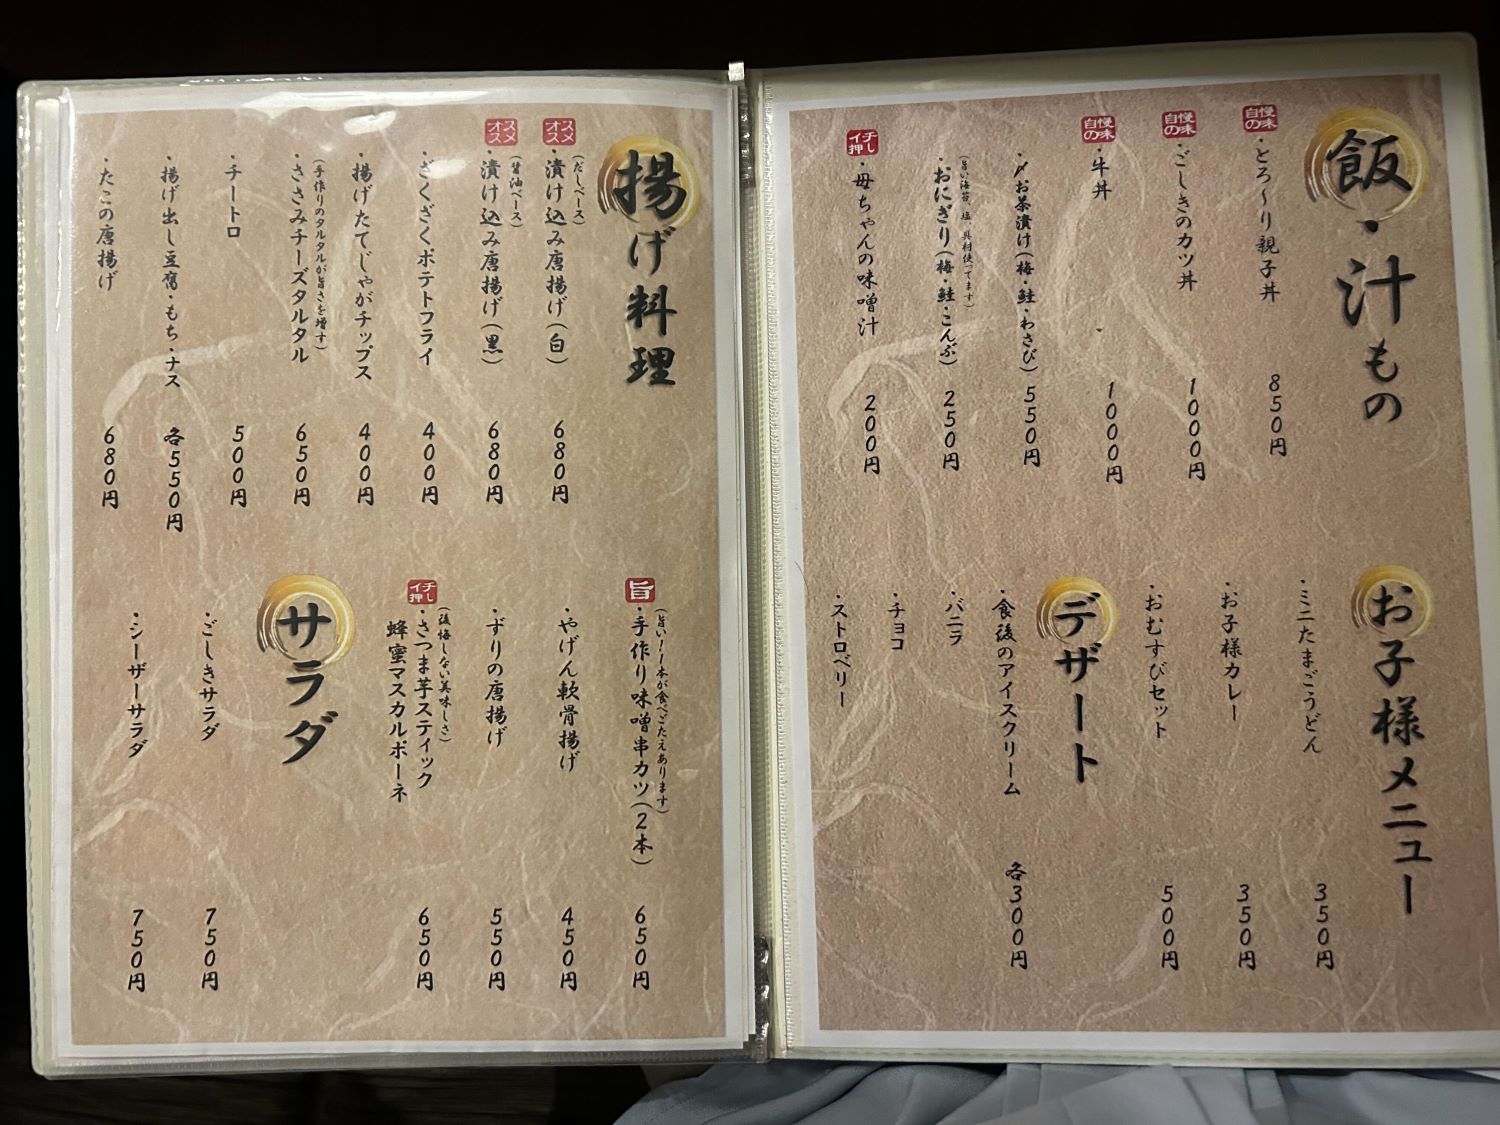 飯・汁もの
自慢の味
・とろ～り親子丼 850円
自慢の味
・ごしきのカツ丼 1000円
自慢の味
・牛丼 1000円
・〆お茶漬け(梅・鮭・わさび) 550円
(旨い海苔、塩、具材使ってます)
・おにぎり(梅・鮭・こんぶ) 250円
イチ押し
・母ちゃんの味噌汁 200円
お子様メニュー
・ミニたまごうどん 350円
・お子様カレー 350円
・おむすびセット 500円
デザート
・食後のアイスクリーム 各300円
・バニラ
・チョコ
・ストロベリー
揚げ料理
オススメ
(だしベース)
・漬け込み唐揚げ(白) 680円
オススメ
(醤油ベース)
・漬け込み唐揚げ(黒) 680円
・ざくざくポテトフライ 400円
・揚げたてじゃがチップス 400円
(手作りのタルタルが旨さを増す)
・ささみチーズタルタル 650円
・チートロ 500円
・揚げ出し豆腐・もち・ナス 各550円
・たこの唐揚げ 680円
旨
(旨い!1本が食べごたえあります)
・手作り味噌串カツ(2本) 650円
・やげん軟骨揚げ 450円
・ずりの唐揚げ 550円
イチ押し
(後悔しない美味しさ)
・さつま芋スティック
蜂蜜マスカルポーネ 650円
サラダ
・ごしきサラダ 750円
・シーザーサラダ 750円